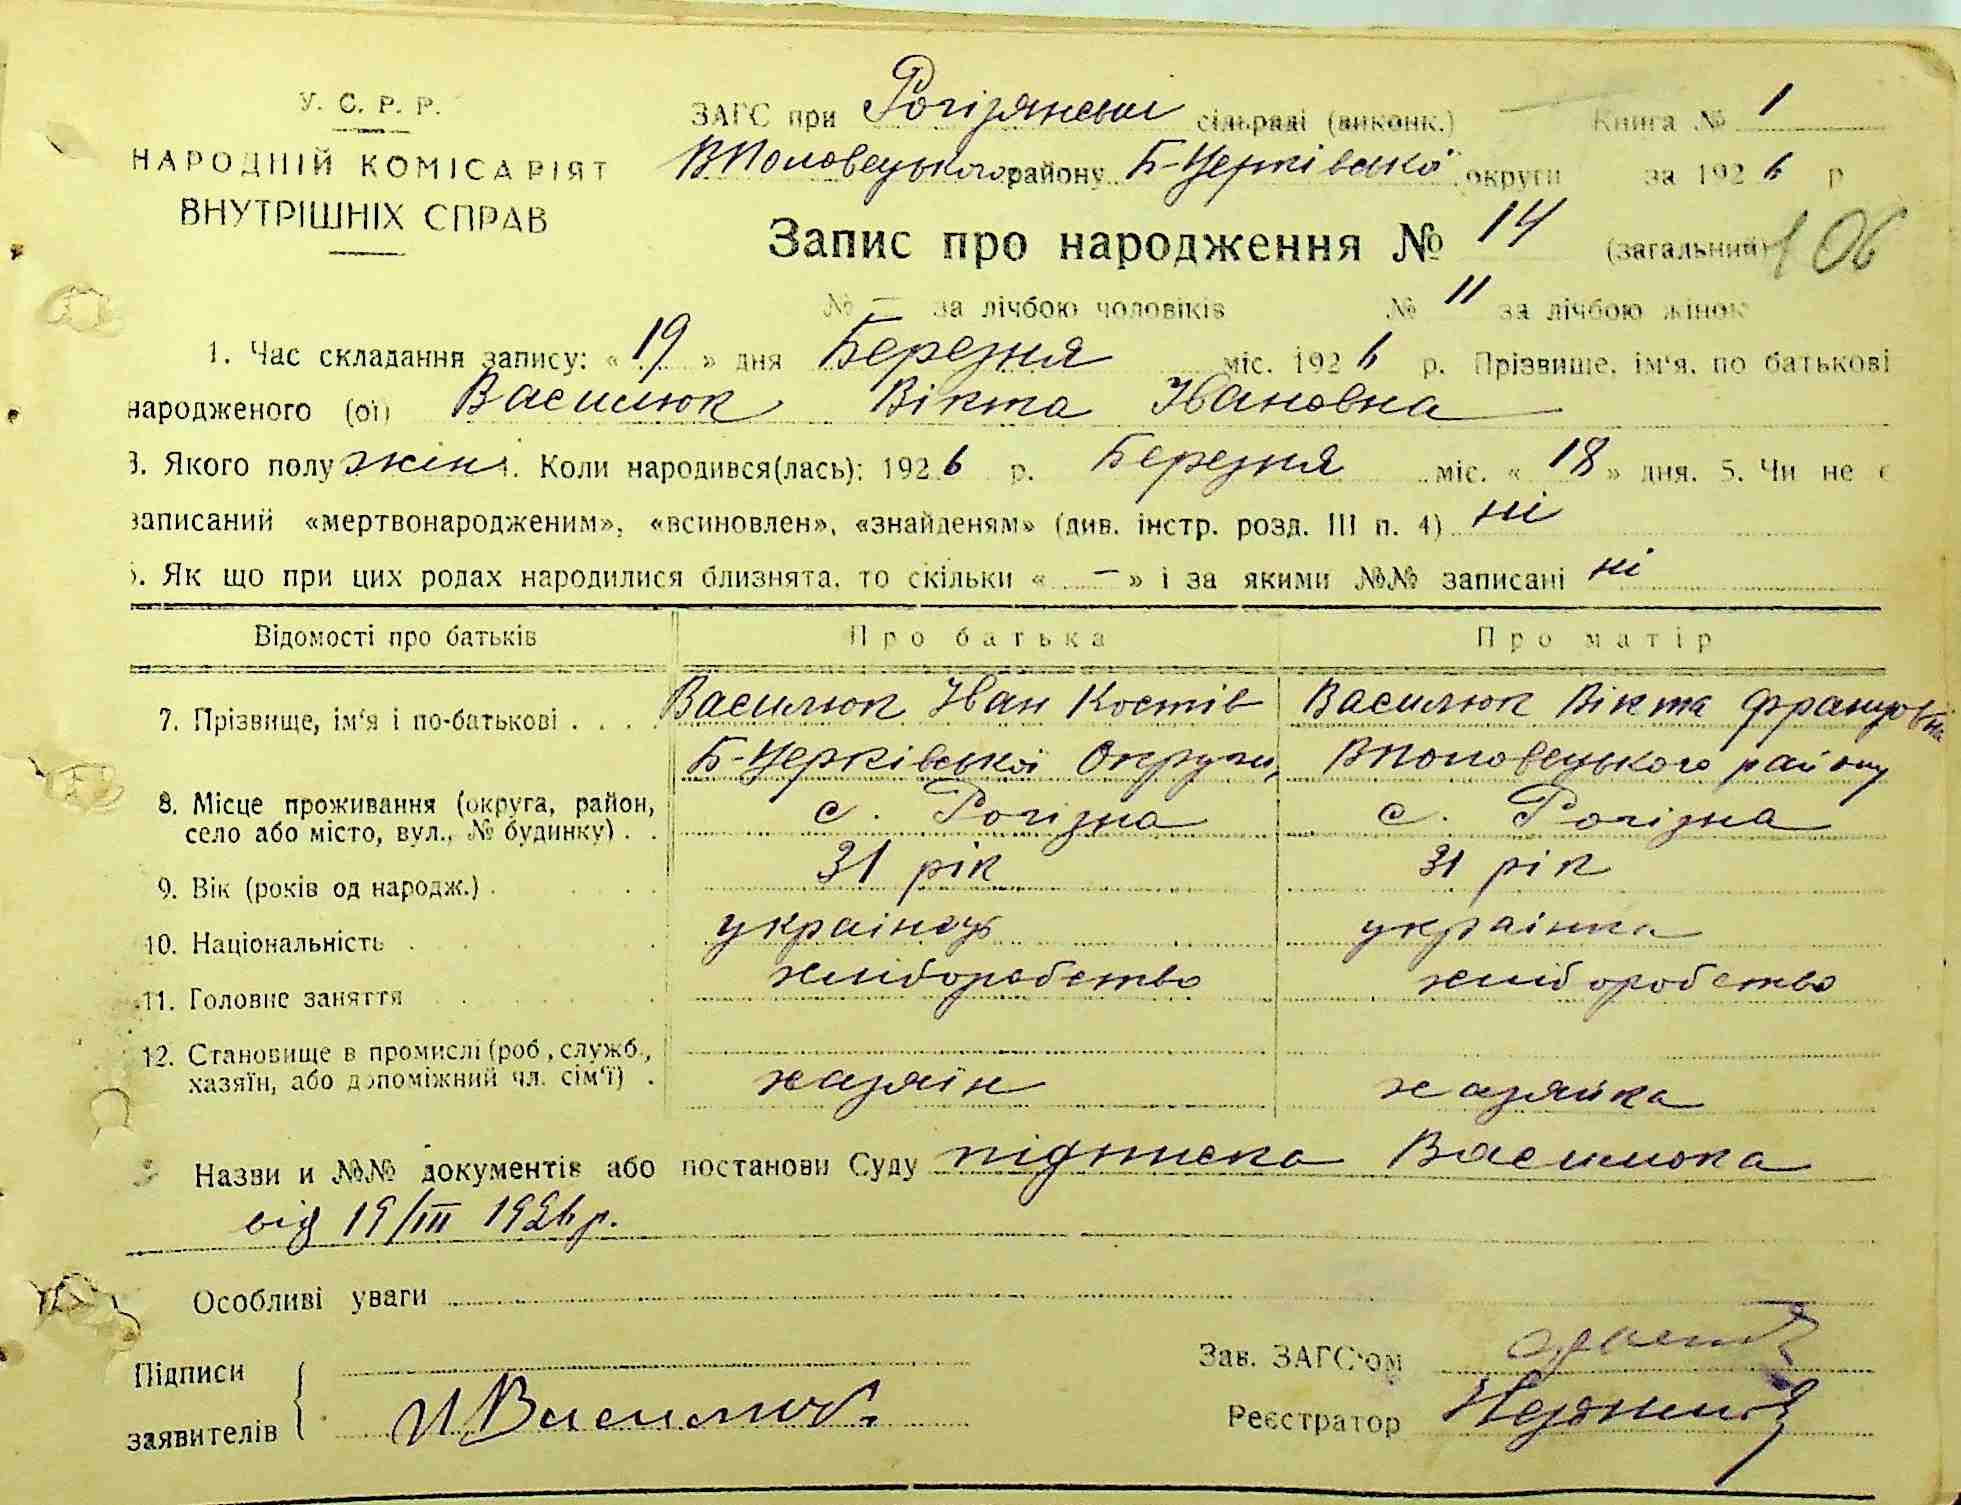 У. С. Р. Р.
НАРОДНІЙ КОМІСАРІЯТ
ВНУТРІШНІХ СПРАВ
ЗАГС при Рогізянські сільраді (виконк.) Книга № 1
ВПоловецького району Б-Церківської округи за 1926 р
Запис про народження № 14 (загальний) 106
№ — за лічбою чоловіків № 11 за лічбою жінок
1. Час складання запису: «19» дня Березня міс. 1926 р. Прізвище, ім'я, по батькові
народженого (ої) Василюк Вікта Івановна
3. Якого полу жін 4. Коли народився(лась): 1926 р. Березня міс. «18» дня. 5. Чи не є
записаний «мертвонародженим», «всиновлен», «знайденям» (див. інстр. розд. III п. 4) ні
6. Як що при цих родах народилися близнята, то скільки «—» і за якими №№ записані ні
Відомості про батьків Про батька Про матір
7. Прізвище, ім'я і по-батькові . . . . Василюк Іван Костів Василюк Вікта Францовна
Б-Церківської Округи, ВПоловецького району
8. Місце проживання (округа, район, село або місто, вул., № будинку) . . с. Рогізна с. Рогізна
9. Вік (років од народж.) . 31 рік 31 рік
10. Національність українець українка
11. Головне заняття хліборобство хліборобство
12. Становище в промислі (роб., служб., хазяїн, або допоміжний чл. сім'ї) . хазяїн хазяйка
Назви и №№ документів або постанови Суду підписка Василюка
від 19/III 1926 р.
Особливі уваги
Підписи
заявителів И Василюк
Зав. ЗАГС'ом
Реєстратор